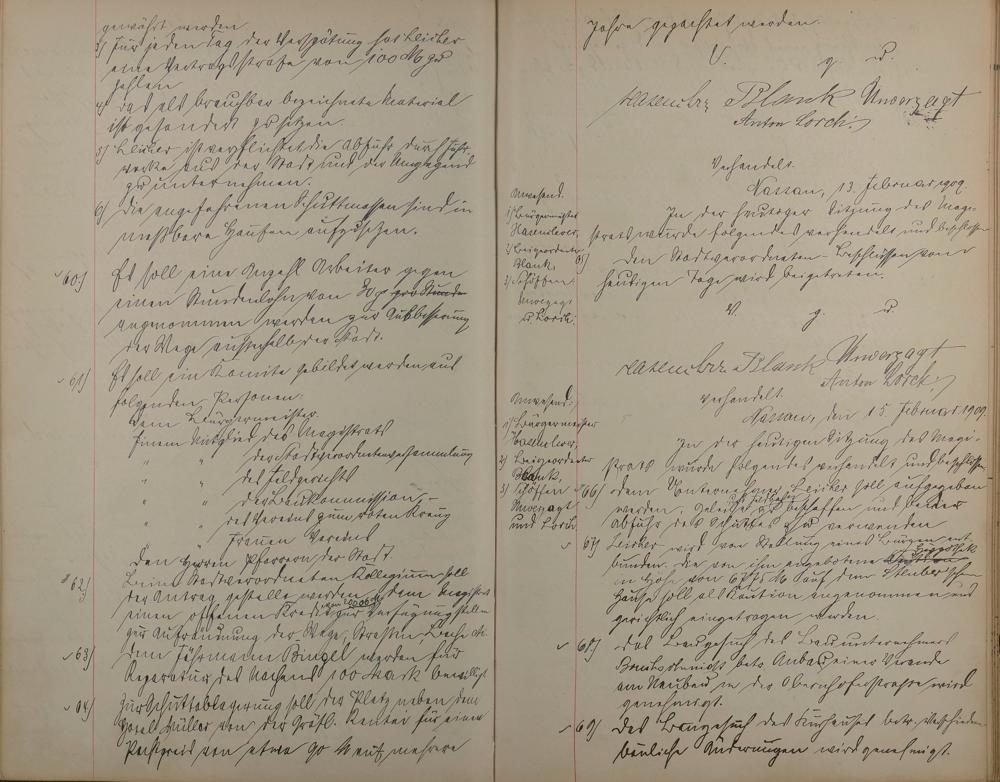 gewährt werden.
3) Für jeden Tag der Verspätung hat Leicher
eine Vertragsstrafe von 100 M zu
zahlen
4) das als brauchbar bezeichnete Material
ist gesondert zu setzen.
5) Leicher ist verpflichtet die Abfuhr durch Fuhr-
werke aus der Stadt und der Umgegend
zu unternehmen.
6) die angefahrenen Schuttmassen sind in
meßbare Haufen aufzusetzen.
60) Es soll eine Anzahl Arbeiter gegen
einen Stundenlohn von 30 pro Stunde
angenommen werden zur Ausbesserung
der Wege außerhalb der Stadt.
61) Es soll ein Komite gebildet werden aus
folgenden Personen:
dem Bürgermeister
Einem Mitglied des Magistrats
" " der Stadtverordnetenversammlung
" " des Feldgerichts
" " der Baukommission,
" " des Vereins zum roten Kreuz
" " Frauen Vereins
den Herren Pfarrern der Stadt.
62) Beim Stadtverordneten Kollegium soll
der Antrag gestellt werden, dem Magistrat
einen offenen Kredit von 1000 M zur Verfügung stellen
zur Aufräumung der Wege, Straßen Bäche etc.
63) dem Fährmann Bingel werden für
Reparatur des Nachens 100 Mark bewilligt
64) Zur Schuttablagerung soll der Platz neben dem
Hotel Müller von der Gräfl. Rentei für einen
Pachtpreis von etwa 90 M auf mehrere
Jahre gepachtet werden.
V. g. u.
Hasenclever Blank Unverzagt
Anton Lorch.
Verhandelt.
Nassau, 13. Februar 1909.
Anwesend.
1) Bürgermeister
Hasenclever,
2) Beigeordneter
Blank,
3) Schöffen
Unverzagt
u. Lorch.
In der heutigen Sitzung des Magi-
strats wurde folgendes verhandelt und beschlossen
65) Den Stadtverordneten-Beschlüssen vom
heutigen Tage wird beigetreten.
V. g. u.
Hasenclever Blank Unverzagt
Anton Lorch.
Verhandelt.
Nassau, den 15. Februar 1909.
Anwesend:
1) Bürgermeister
Hasenclever,
2) Beigeordneter
Blank,
3) Schöffen
Unverzagt
und Lorch
In der heutigen Sitzung des Magi-
strats wurde folgendes verhandelt und beschlossen
66) dem Unternehmer Leicher soll aufgegeben
werden, Geleise zu beschaffen und bei der
Abfuhr des Schuttes zu verwenden
67) Leicher wird von Stellung eines Bürgen ent-
bunden. die von ihm angebotene Hypothek
in Höhe von 6775 M auf dem
Hause soll als Kaution angenommen und
gerichtlich eingetragen werden.
68) das Baugesuch des Bauunternehmers
betr. Anbau einer Veranda
am Neubau in der Obernhoferstraße wird
genehmigt.
69) Das Baugesuch des Kurhauses betr. verschiedene
bauliche Änderungen wird genehmigt.